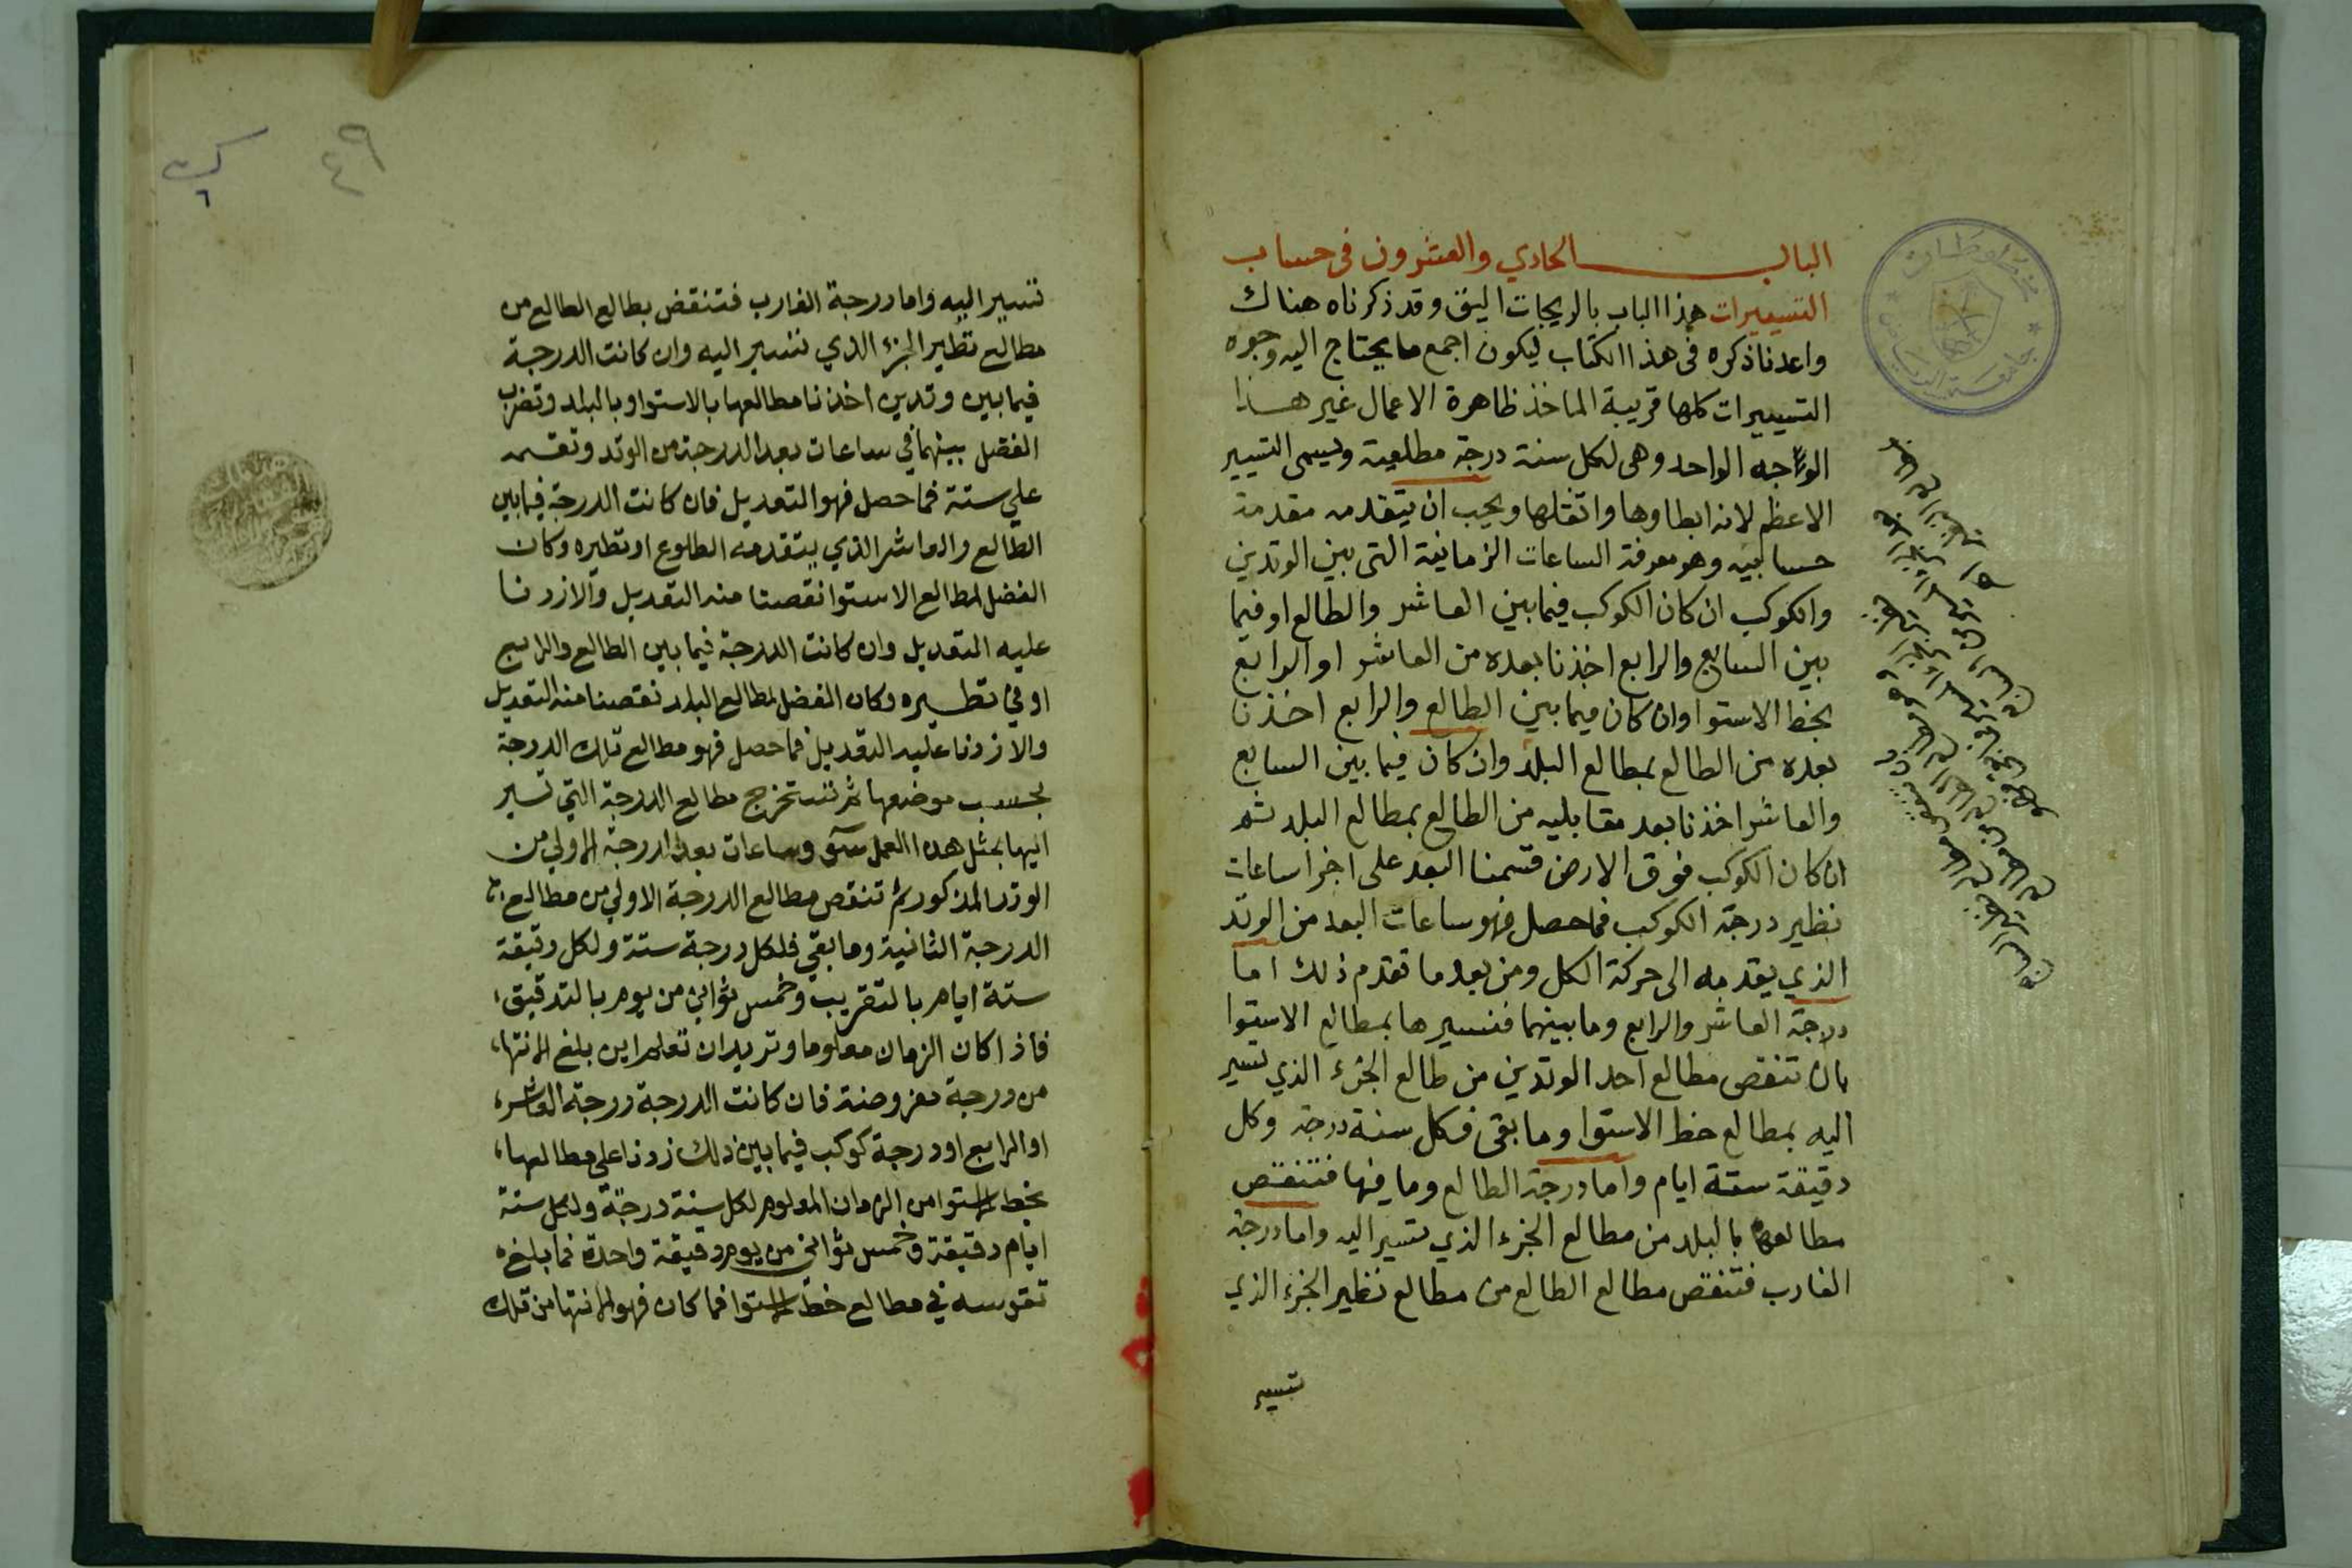 الباب الحادي والعشرون في حساب
التسييرات هذا الباب بالزيجات اليق وقد ذكرناه هناك
واعدنا ذكره في هذا الكتاب ليكون اجمع ما يحتاج اليه وجوه
التسييرات كلها قريبة الماخذ ظاهرة الاعمال غير هذا
الوجه الواحد وهي لكل سنة درجة مطلعية ويسمى التسيير
الاعظم لانه ابطاوها واثقلها ويجب ان يتقدمه مقدمة
حسابيه وهو معرفة الساعات الزمانية التي بين الوتدين
والكوكب ان كان الكوكب فيما بين العاشر والطالع او فيما
بين السابع والرابع اخذنا بعده من العاشر او الرابع
بخط الاستوا وان كان فيما بين الطالع والرابع اخذنا
بعده من الطالع بمطالع البلد وان كان فيما بين السابع
والعاشر اخذنا بعد مقابليه من الطالع بمطالع البلد ثم
ان كان الكوكب فوق الارض قسمنا البعد على اجزا ساعات
نظير درجة الكوكب فما حصل فهو ساعات البعد من الوتد
الذي يقدمه الى حركة الكل ومن بعد ما تقدم ذلك اما
درجة العاشر والرابع وما بينهما فنسيرها بمطالع الاستوا
بان تنقص مطالع احد الوتدين من طالع الجزء الذي تسير
اليه بمطالع خط الاستوا وما بقى فكل سنة درجة وكل
دقيقة ستة ايام واما درجة الطالع وما فيها فتنقص
مطالعها بالبلد من مطالع الجزء الذي تسير اليه واما درجة
الغارب فتنقص مطالع الطالع من مطالع نظير الجزء الذي
تسير
٤٩
٦
تسير اليه واما درجة الغارب فتنقض بطالع الطالع من
مطالع نظير الجزء الذي تسير اليه وان كانت الدرجة
فيما بين وتدين اخذنا مطالعها بالاستوا وبالبلد وتضرب
الفضل بينهما في ساعات بعد الدرجة من الوتد وتقسمه
علي ستة فما حصل فهو التعديل فان كانت الدرجة فيما بين
الطالع والعاشر الذي يتقدمه الطلوع او نظيره وكان
الفضل لمطالع الاستوا نقصنا منه التعديل والا زدنا
عليه التعديل وان كانت الدرجة فيما بين الطالع والرابع
او في نظيره وكان الفضل لمطالع البلد نقصنا منه التعديل
والا زدنا عليه التعديل فما حصل فهو مطالع تلك الدرجة
بحسب موضعها ثم نستخرج مطالع الدرجة التي تسير
اليها بمثل هذا العمل وساعات بعد الدرجة الاولي من
الوتد المذكور ثم تنقص مطالع الدرجة الاولي من مطالع
الدرجة الثانية وما بقي فلكل درجة ستة ولكل دقيقة
ستة ايام بالتقريب وخمس ثواني من يوم بالتدقيق
فاذا كان الزمان معلوما وتريد ان تعلم اين بلغ الانتها
من درجة مفروضة فان كانت الدرجة درجة العاشر
او الرابع او درجة كوكب فيما بين ذلك زدنا علي مطالعها
بخط الاستوا من الزمان المعلوم لكل سنة درجة ولكل ستة
ايام دقيقة وخمس ثواني من يوم دقيقة واحدة فما بلغ
تقوسه في مطالع خط الاستوا فما كان فهو الانتها من تلك